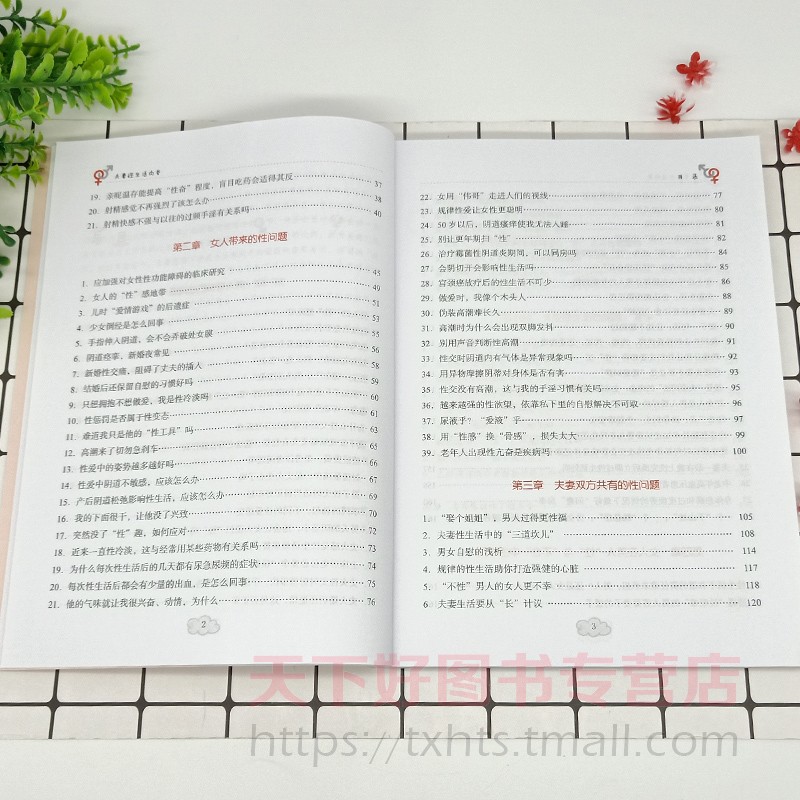 夫妻性生活必看
19. 亲昵温存能提高“性奋”程度，盲目吃药会适得其反 37
20. 射精感觉不再强烈了该怎么办 38
21. 射精快感不强与以往的过频手淫有关系吗 40
第二章 女人带来的性问题
1. 应加强对女性性功能障碍的临床研究 45
2. 女人的“性”感地带 49
3. 儿时“爱情游戏”的后遗症 51
4. 少女倒经是怎么回事 53
5. 手指伸入阴道，会不会弄破处女膜 55
6. 阴道痉挛，新婚夜常见 56
7. 新婚性交痛，阻碍了丈夫的插入 58
8. 结婚后还保留自慰的习惯好吗 59
9. 只想拥抱不想做爱，我是性冷淡吗 60
10. 性惩罚是否属于性变态 61
11. 难道我只是他的“性工具”吗 63
12. 高潮来了切勿急刹车 65
13. 性爱中的姿势越多越好吗 66
14. 性爱中阴道不敏感，应该怎么办 67
15. 产后阴道松弛影响性生活，应该怎么办 69
16. 我的下面很干，让他没了兴致 70
17. 突然没了“性”趣，如何应对 72
18. 近来一直性冷淡，这与经常用某些药物有关系吗 73
19. 为什么每次性生活后的几天都有尿急尿频的症状 74
20. 每次性生活后都会有少量的出血，是怎么回事 75
21. 他的气味就让我很兴奋、动情，为什么 76
2
目 录
22. 女用“伟哥”走进人们的视线 77
23. 规律性爱让女性更聪明 80
24. 50岁以后，阴道瘙痒使我无法入睡 81
25. 别让更年期扫“性” 82
26. 治疗霉菌性阴道炎期间，可以同房吗 84
27. 会阴切开会影响性生活吗 85
28. 宫颈癌放疗后的性生活不可少 86
29. 做爱时，我像个木头人 88
30. 伪装高潮难长久 89
31. 高潮时为什么会出现双脚发抖 90
32. 别用声音判断性高潮 91
33. 性交时阴道内有气体是异常现象吗 92
34. 用异物摩擦阴蒂对身体是否有害 93
35. 性交没有高潮，这与我的手淫习惯有关吗 95
36. 越来越强的性欲望，依靠私下里的自慰解决不可取 96
37. 尿液乎？“爱液”乎 97
38. 用“性感”换“骨感”，损失太大 99
39. 老年人出现性亢奋是疾病吗 100
第三章 夫妻双方共有的性问题
1. “娶个姐姐”，男人过得更性福 105
2. 夫妻性生活中的“三道坎儿” 108
3. 男女自慰的浅析 114
4. 规律的性生活助你打造强健的心脏 117
5. “不性”男人的女人更不幸 118
6 夫妻生活要从“长”计议 120
3
天下好图书专营店
https://txhts.tmall.com